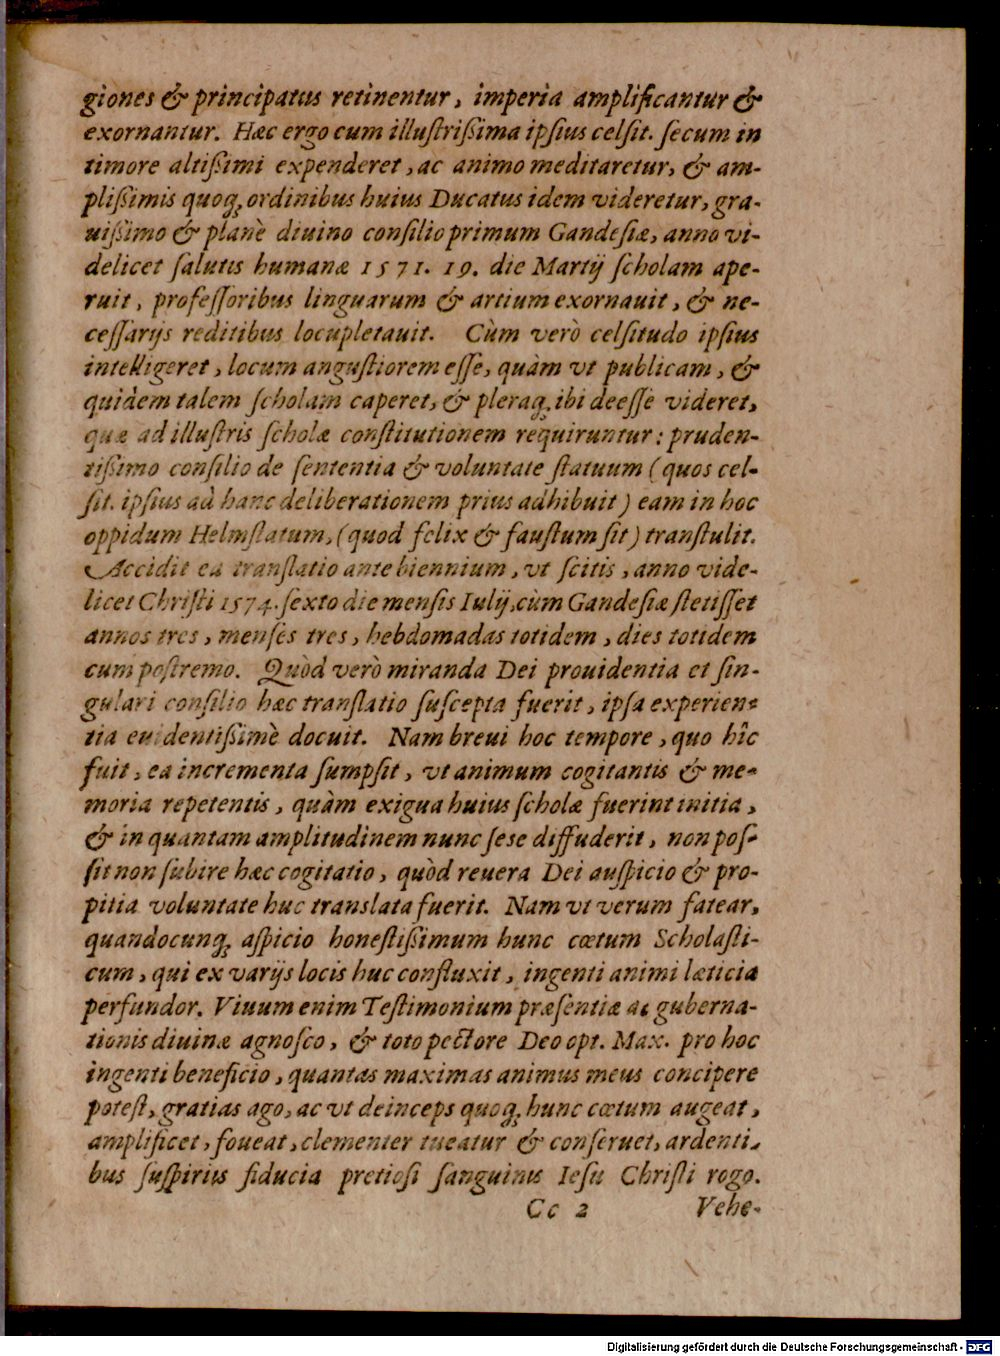 giones & principatus retinentur, imperia amplificantur &
exornantur. Hæc ergo cum illuſtriſsima ipſius celſit. ſecum in
timore altiſsimi expenderet, ac animo meditaretur, & am-
pliſsimis quoq; ordinibus huius Ducatus idem videretur, gra-
uiſsimo & planè diuino conſilio primum Gandeſiæ, anno vi-
delicet ſalutis humanæ 1571. 19. die Martij ſcholam ape-
ruit, profeſſoribus linguarum & artium exornauit, & ne-
ceſſarijs reditibus locupletauit. Cùm verò celſitudo ipſius
intelligeret, locum anguſtiorem eſſe, quàm vt publicam, &
quidem talem ſcholam caperet, & pleraq; ibi deeſſe videret,
quæ ad illuſtris ſcholæ conſtitutionem requiruntur: pruden-
tiſsimo conſilio de ſententia & voluntate ſtatuum (quos cel-
ſit. ipſius ad hanc deliberationem prius adhibuit) eam in hoc
oppidum Helmſtatum, (quod felix & fauſtum ſit) tranſtulit.
Accidit ea tranſlatio ante biennium, vt ſcitis, anno vide-
licet Chriſti 1574. ſexto die menſis Iulij, cùm Gandeſiæ ſtetiſſet
annos tres, menſes tres, hebdomadas totidem, dies totidem
cum poſtremo. Quòd verò miranda Dei prouidentia et ſin-
gulari conſilio hæc tranſlatio ſuſcepta fuerit, ipſa experien-
tia euidentiſsimè docuit. Nam breui hoc tempore, quo hîc
fuit, ea incrementa ſumpſit, vt animum cogitantis & me-
moria repetentis, quàm exigua huius ſcholæ fuerint initia,
& in quantam amplitudinem nunc ſeſe diffuderit, non poſ-
ſit non ſubire hæc cogitatio, quòd reuera Dei auſpicio & pro-
pitia voluntate huc translata fuerit. Nam vt verum fatear,
quandocunq; aſpicio honeſtiſsimum hunc cœtum Scholaſti-
cum, qui ex varijs locis huc confluxit, ingenti animi læticia
perfundor. Viuum enim Teſtimonium præſentiæ ac guberna-
tionis diuinæ agnoſco, & toto pectore Deo opt. Max. pro hoc
ingenti beneficio, quantas maximas animus meus concipere
poteſt, gratias ago, ac vt deinceps quoq; hunc cœtum augeat,
amplificet, foueat, clementer tueatur & conſeruet, ardenti-
bus ſuſpiriis fiducia pretioſi ſanguinis Ieſu Chriſti rogo.
Cc 2 Vehe-
Digitalisierung gefördert durch die Deutsche Forschungsgemeinschaft - DFG